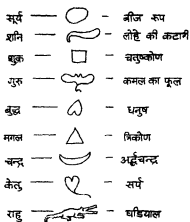 सूर्य — — बीज रूप
शनि — — लोहे की कटारी
शुक्र — — चतुष्कोण
गुरु — — कमल का फूल
बुद्ध — — धनुष
मंगल — — त्रिकोण
चन्द्र — — अर्द्धचन्द्र
केतु — — सर्प
राहु — — घड़ियाल